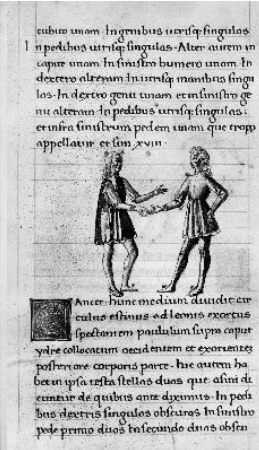 cubito unam. In genibus utrisq; singulas
In pedibus utrisq; singulas. Alter autem in
capite unam. In sinistro humero unam. In
dextero alteram. In utrisq manibus singu
las. In dextro genu unam et in sinistro ge
nu alteram. In pedibus utrisq; singulas:
et infra sinistrum pedem unam que tropp
appellatur et sun. xviii.
CAncer. hunc medium dividit cir
culus estivus ad leonis exortus
spectantem paululum supra caput
ydre collocatum occidentem et exorientez
posteriore corporis parte. hic autem ha
bet in ipsa testa stellas duas que asini di
cuntur de quibus ante diximus. In pedi
bus dextris singulas obscuras. In sinistro
pede primo duas In secundo duas obscu